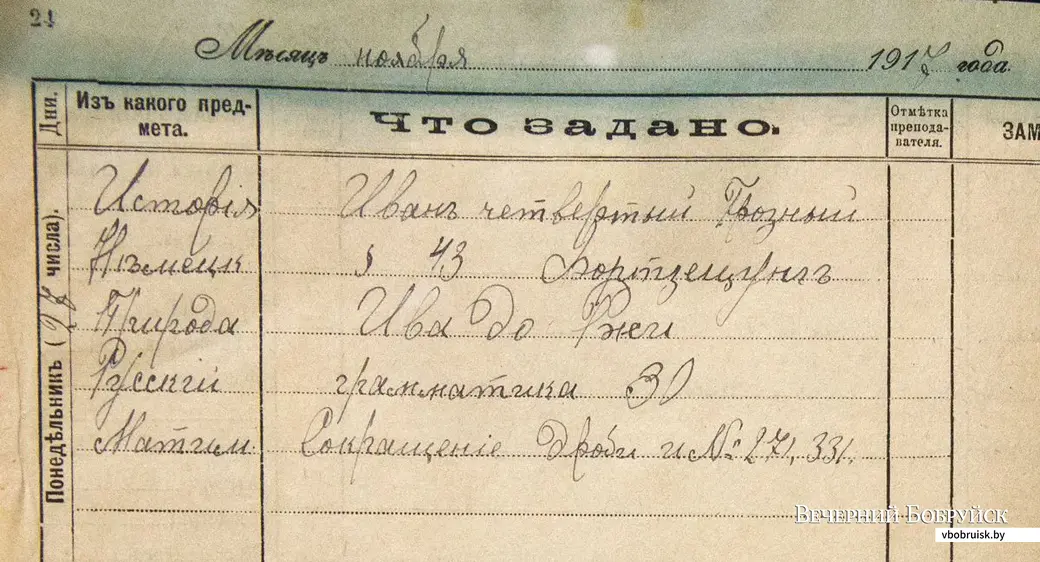 24
Мѣсяцъ ноября 1917 года
Дни.
Изъ какого пред-
мета.
Что задано.
Отмѣтка
препода-
вателя.
ЗАМ
Понедѣльникъ ( числа).
Исторія Иванъ четвертый Грозный
Нѣмецк § 43
Природа Ива до Ржи
Русскій грамматика 30
Матим. Сокращеніе дроби и № 271, 331.
Вечерний Бобруйск
vbobruisk.by